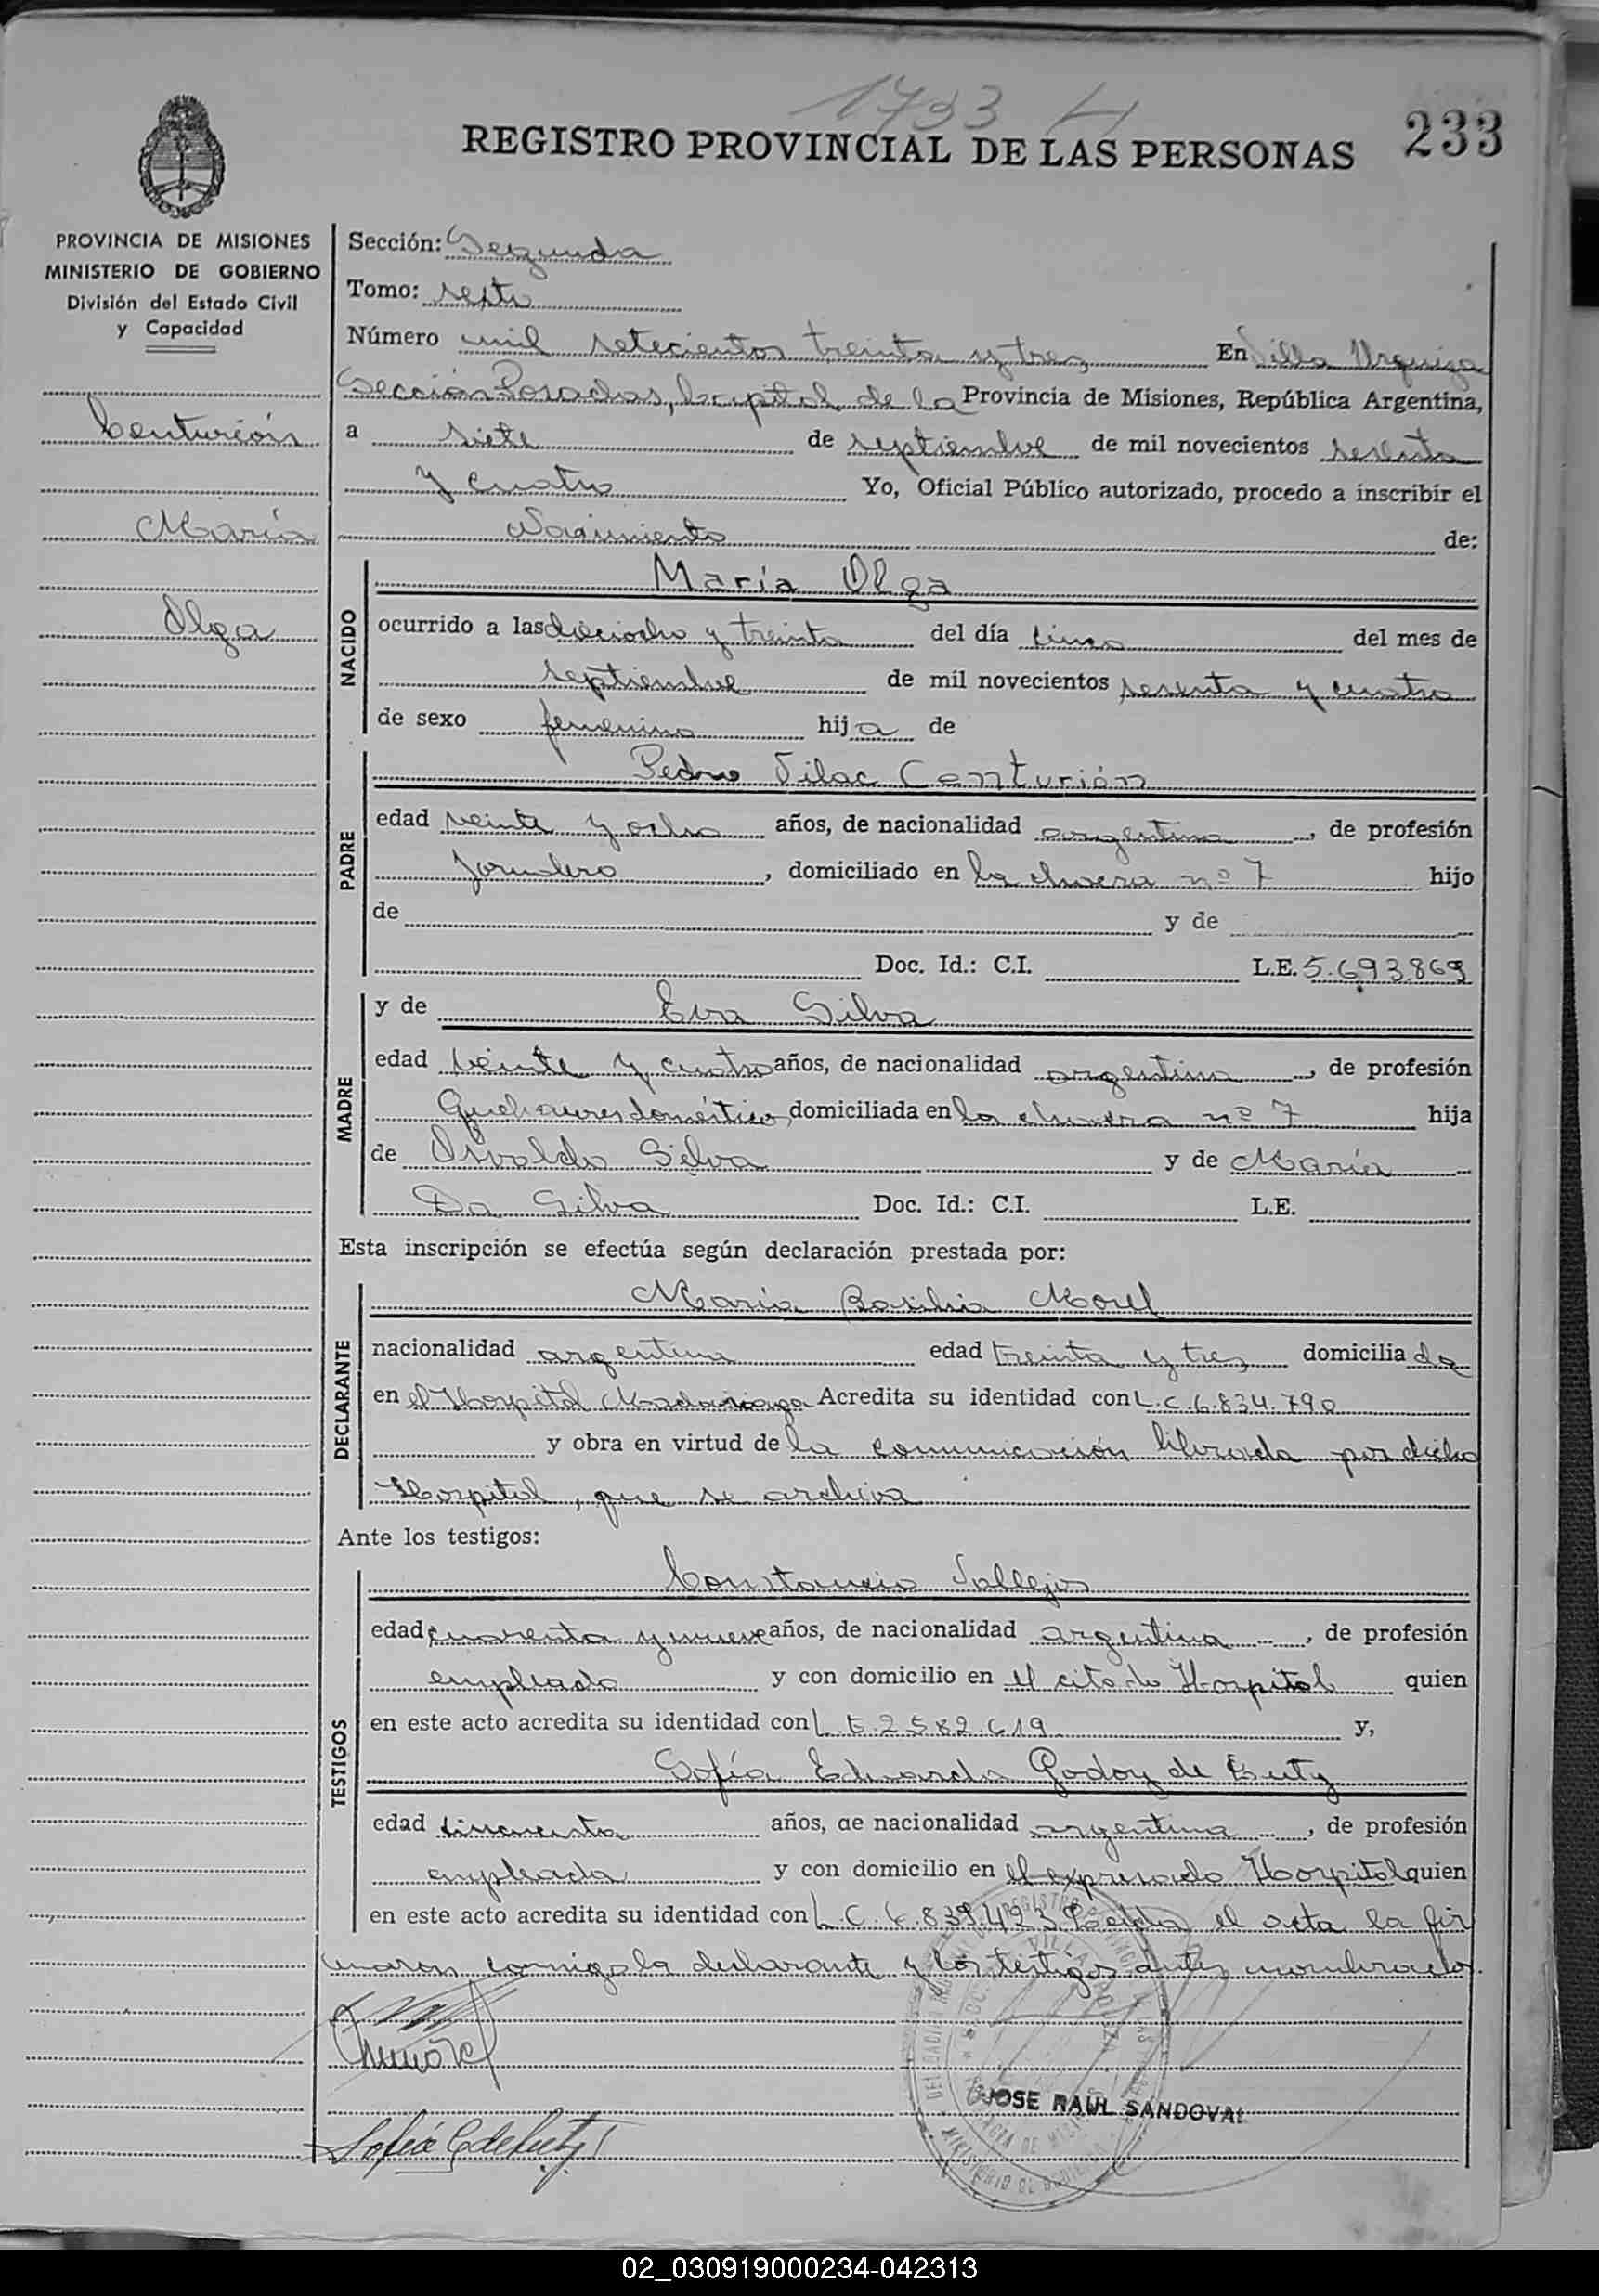 1733 H
REGISTRO PROVINCIAL DE LAS PERSONAS 233
PROVINCIA DE MISIONES
MINISTERIO DE GOBIERNO
División del Estado Civil
y Capacidad
Centurión
María
Olga
Sección: Segunda
Tomo: sexto
Número mil setecientos treinta y tres En Villa Urquiza
Sección Posadas, Capital de la Provincia de Misiones, República Argentina,
a siete de septiembre de mil novecientos sesenta
y cuatro Yo, Oficial Público autorizado, procedo a inscribir el
Nacimiento de:
NACIDO
María Olga
ocurrido a las dieciocho y treinta del día cinco del mes de
septiembre de mil novecientos sesenta y cuatro
de sexo femenino hija de
PADRE
Pedro Vilac Centurión
edad veinte y ocho años, de nacionalidad argentina, de profesión
jornalero, domiciliado en la chacra nº 7 hijo
de y de
Doc. Id.: C.I. L.E. 5.693.869
MADRE
y de Eva Silva
edad veinte y cuatro años, de nacionalidad argentina, de profesión
Quehaceres domésticos, domiciliada en la chacra nº 7 hija
de Osvaldo Silva y de María
Da Silva Doc. Id.: C.I. L.E.
Esta inscripción se efectúa según declaración prestada por:
DECLARANTE
María Basilia Morel
nacionalidad argentina edad treinta y tres domiciliada
en el Hospital Madariaga Acredita su identidad con L.C. 6.834.790
y obra en virtud de la comunicación librada por dicho
Hospital, que se archiva
Ante los testigos:
TESTIGOS
Constancio Vallejos
edad cuarenta y nueve años, de nacionalidad argentina, de profesión
empleado y con domicilio en el citado Hospital quien
en este acto acredita su identidad con L.E. 2582.619 y,
Sofía Eduarda Godoy de
edad cincuenta años, de nacionalidad argentina, de profesión
empleada y con domicilio en el expresado Hospital quien
en este acto acredita su identidad con L.C. 6.839.423 Leída el acta la fir
maron conmigo la declarante y los testigos antes nombrados.
JOSE RAUL SANDOVAL
02_030919000234-042313